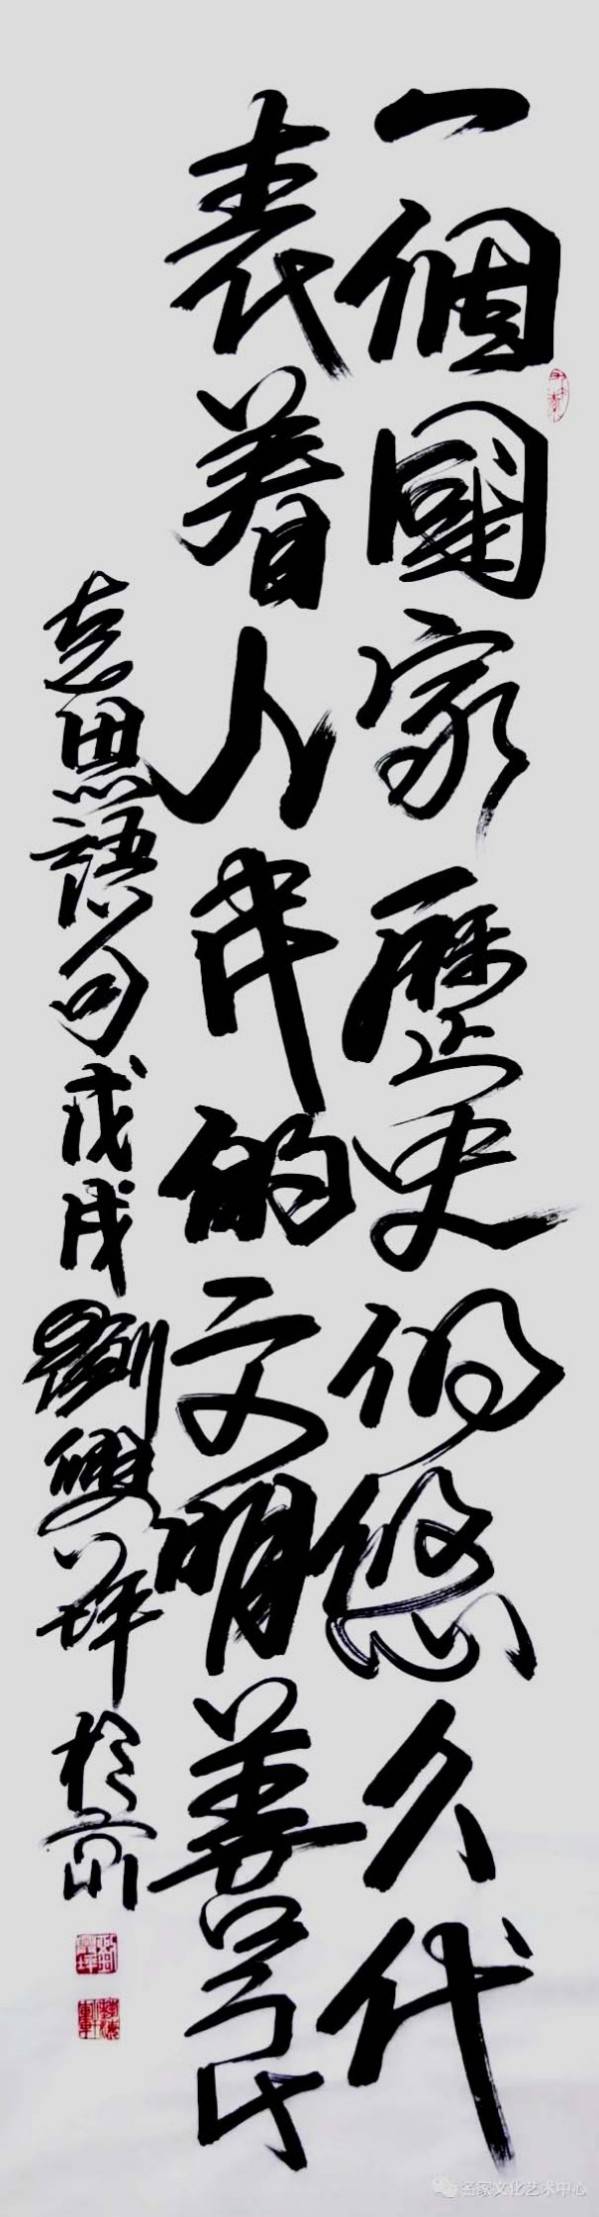 一個國家歷史的悠久代
表着人民的文明善
志思語句戊戌劉雙萍於京
名家文化艺术中心